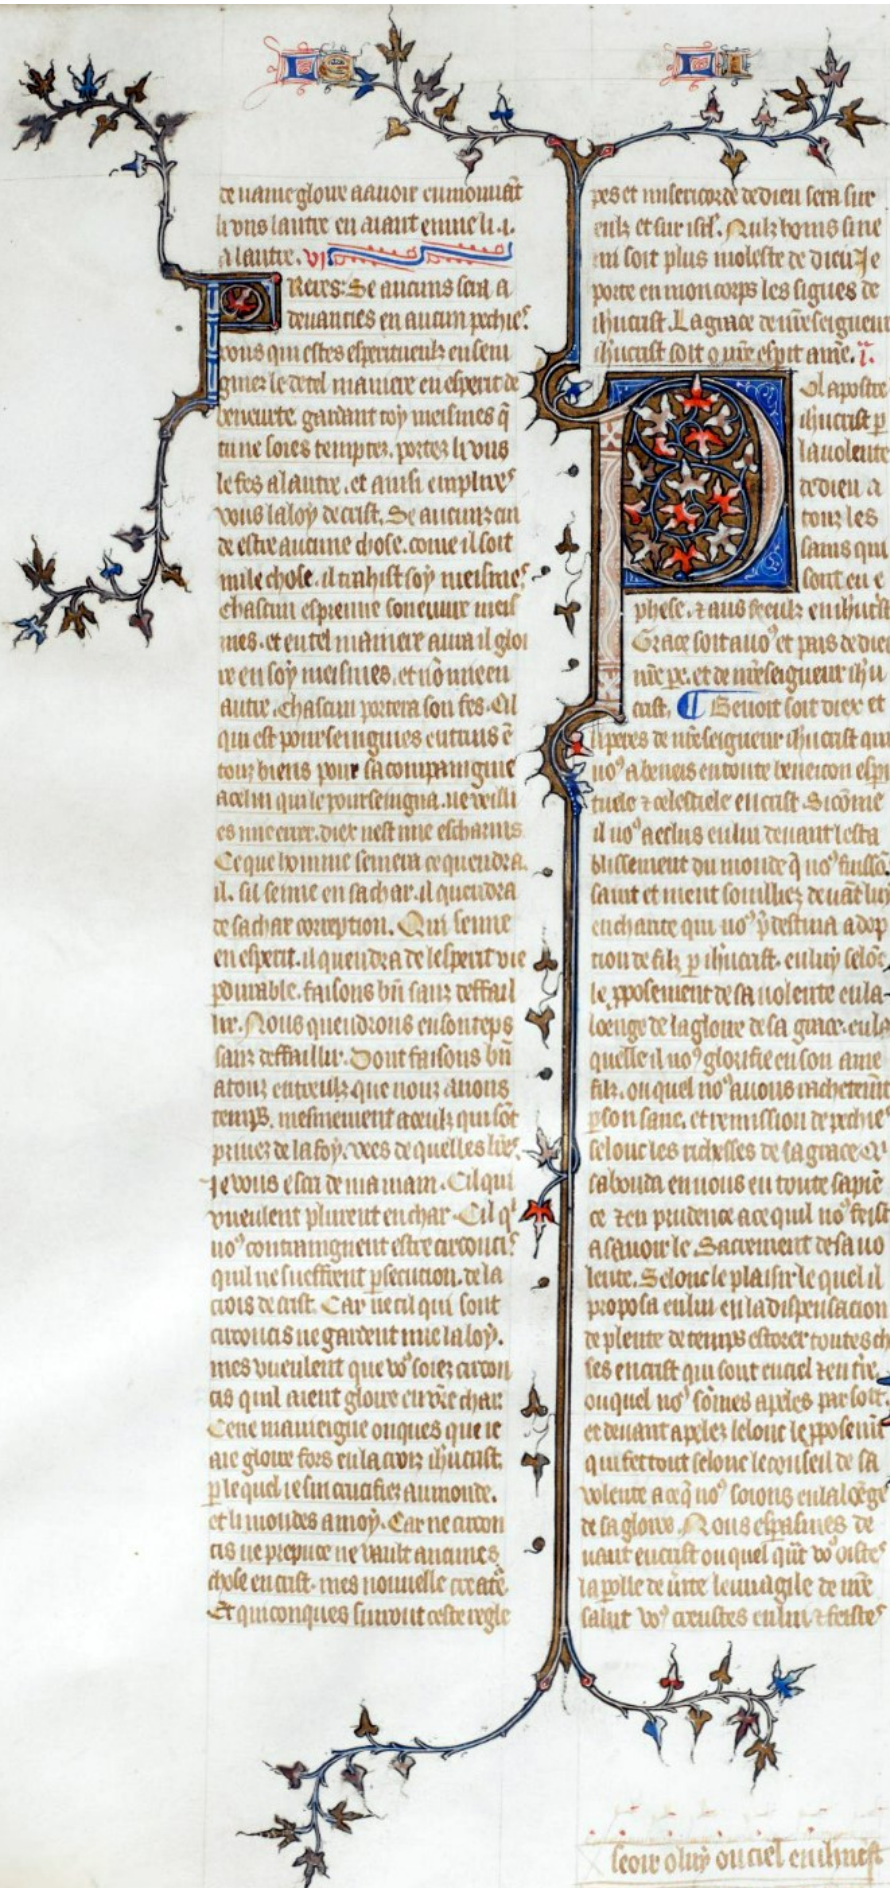 de vaine gloire a avoir en morquāt
li vns lautre en aiant enuie li .i.
a lautre. vi
Freres. Se aucuns sera a
deuancies en aucun pechie
vous qui estes esperitueulz ensein
gniez le de tel maniere en esperit de
gardant toy meismes q̄
tu ne soies temptez. portez li vns
le fes a lautre. et ainsi emplirez
vous la loy de crist. Se aucunz cui
de estre aucune chose. cōme il soit
nule chose. il trahist soy meismes
chascun espreuue son euure meis
mes. et en tel maniere aura il gloi
re en soy meismes. et nō mie en
autre. chascun portera son fes. Cil
qui est pourseingnies
touz biens pour sa compaingnie
a celui qui le pourseingna. ne veilli
es mie errer. diex nest mie escharnis
Ce que homme semera ce queudra
il. sil seime en sa char. il queudra
de sa char corrupcion. Qui seime
en esperit. il queudra de lesperit vie
pdurable. faisons bn̄ sanz deffail
lir. Nous queudrons en son temps
sanz deffaillir. Dont faisons bn̄
a touz entreulz que nouz auons
temps. mesmement a ceulz qui sōt
priuez de la foy. vees de quelles lr̄es
Je vous escri de ma main. Cil qui
vueulent plaire en char. Cil q
uoꝰ contraingnent estre circoncis
quil ne sueffrent psecution. de la
crois de crist. Car ne cil qui sont
circoncis ne gardent mie la loy.
mes vueulent que voꝰ soiez circon
cis quil aient gloire en vr̄e char.
Ce ne mauiengne onques que ie
aie gloire fors en la croiz ihūcrist.
p le quel ie sui crucifiez au monde.
et li mondes a moy. Car ne circon
cis ne prepuce ne vault aucunes
chose en crist. mes nouuelle creat̄e
Et quiconques suiront ceste regle
pes et misericorde de dieu sera sur
eulz et sur isrl. Nulz homs sine
ni soit plus moleste de dieu Je
porte en mon corps les signes de
ihūcrist. La grace de nr̄e seigneur
ihūcrist soit o vr̄e espit amē. i.
Pol apostre
ihūcrist p
la volente
de dieu a
touz les
sains qui
sont en e
phese. ⁊ aus feeulz en ihūcrist
Grace soit a uoꝰ et pais de dieu
nr̄e pe. et de nr̄e seigneur ihū
crist. Benoit soit diex et
li peres de nr̄e seigneur ihūcrist qui
noꝰ a beneis en toute beneicon espi
tuele ⁊ celestiele en crist. Si cōme
il noꝰ a eslus en lui deuant lesta
blissement du monde q̄ noꝰ fuissōs
saint et nient souilliez deuāt luy
en charite qui noꝰ p̄destina a dop
tion de filz p ihūcrist. en luy selōc
le pposement de sa uolente en la
loenge de la gloire de sa grace. en la
quelle il noꝰ glorifie en son ame
filz. ou quel noꝰ auons rachetemt
p son sanc. et remission de pechie
selonc les richesses de sa grace. Qi
sabonda en nous en toute sapiē
ce ⁊ en prudence a ce quil noꝰ feist
a sauoir le Sacrement de sa uo
lente. Selonc le plaisir le quel il
proposa en lui en la dispensacion
de plente de temps estorer toutes ch
ses en crist qui sont en ciel ⁊ en tr̄e
ou quel noꝰ sōmes apeles par sort.
et deuant apelez selonc le pposemt
qui fet tout selonc le conseil de sa
volente a ce q̄ noꝰ soions en la loēge
de sa gloire. Nous esperasmes de
uant en crist ou quel qūt voꝰ oistes
la polle de uerite leuuangile de vr̄e
salut voꝰ creustes en lui ⁊ feistes
seoir o luy ou ciel en ihūcrist